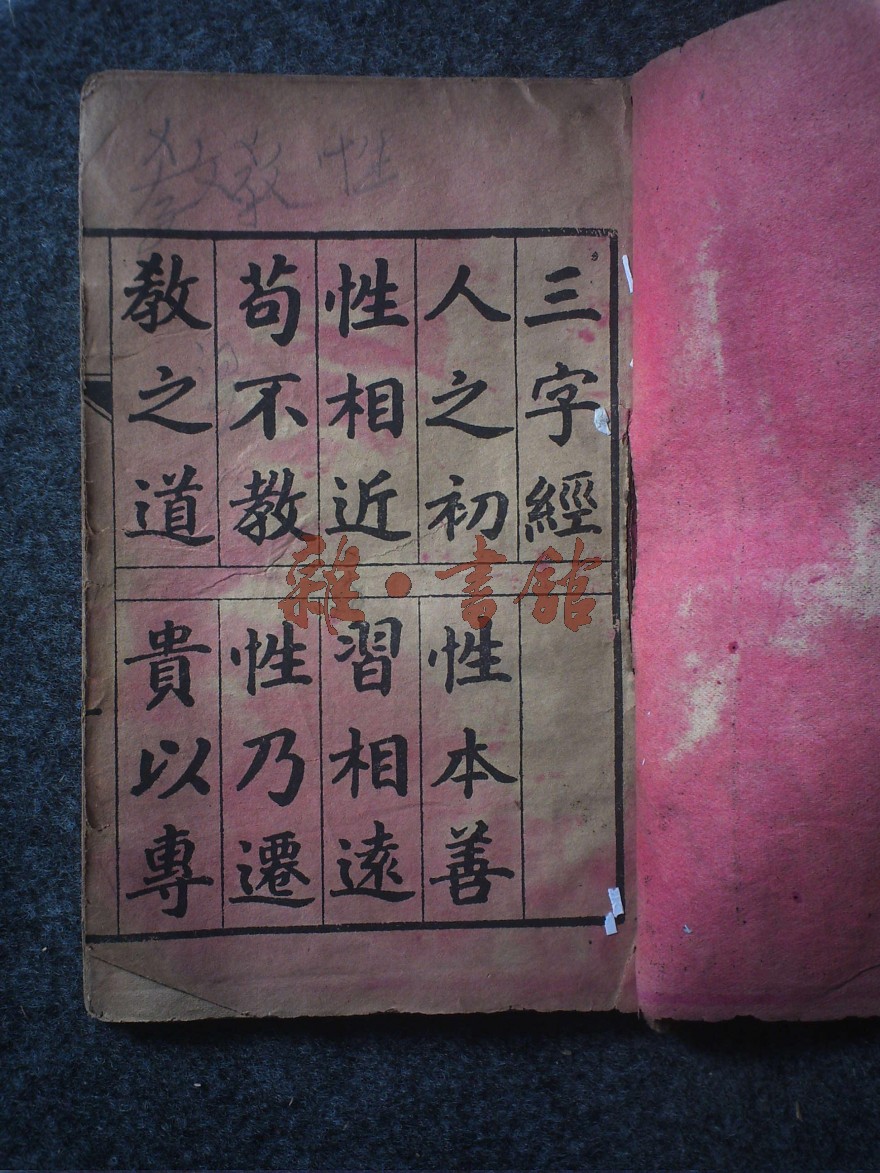 三字經
人之初
性本善
性相近
習相遠
苟不教
性乃遷
教之道
貴以專
性
教
雜·書館